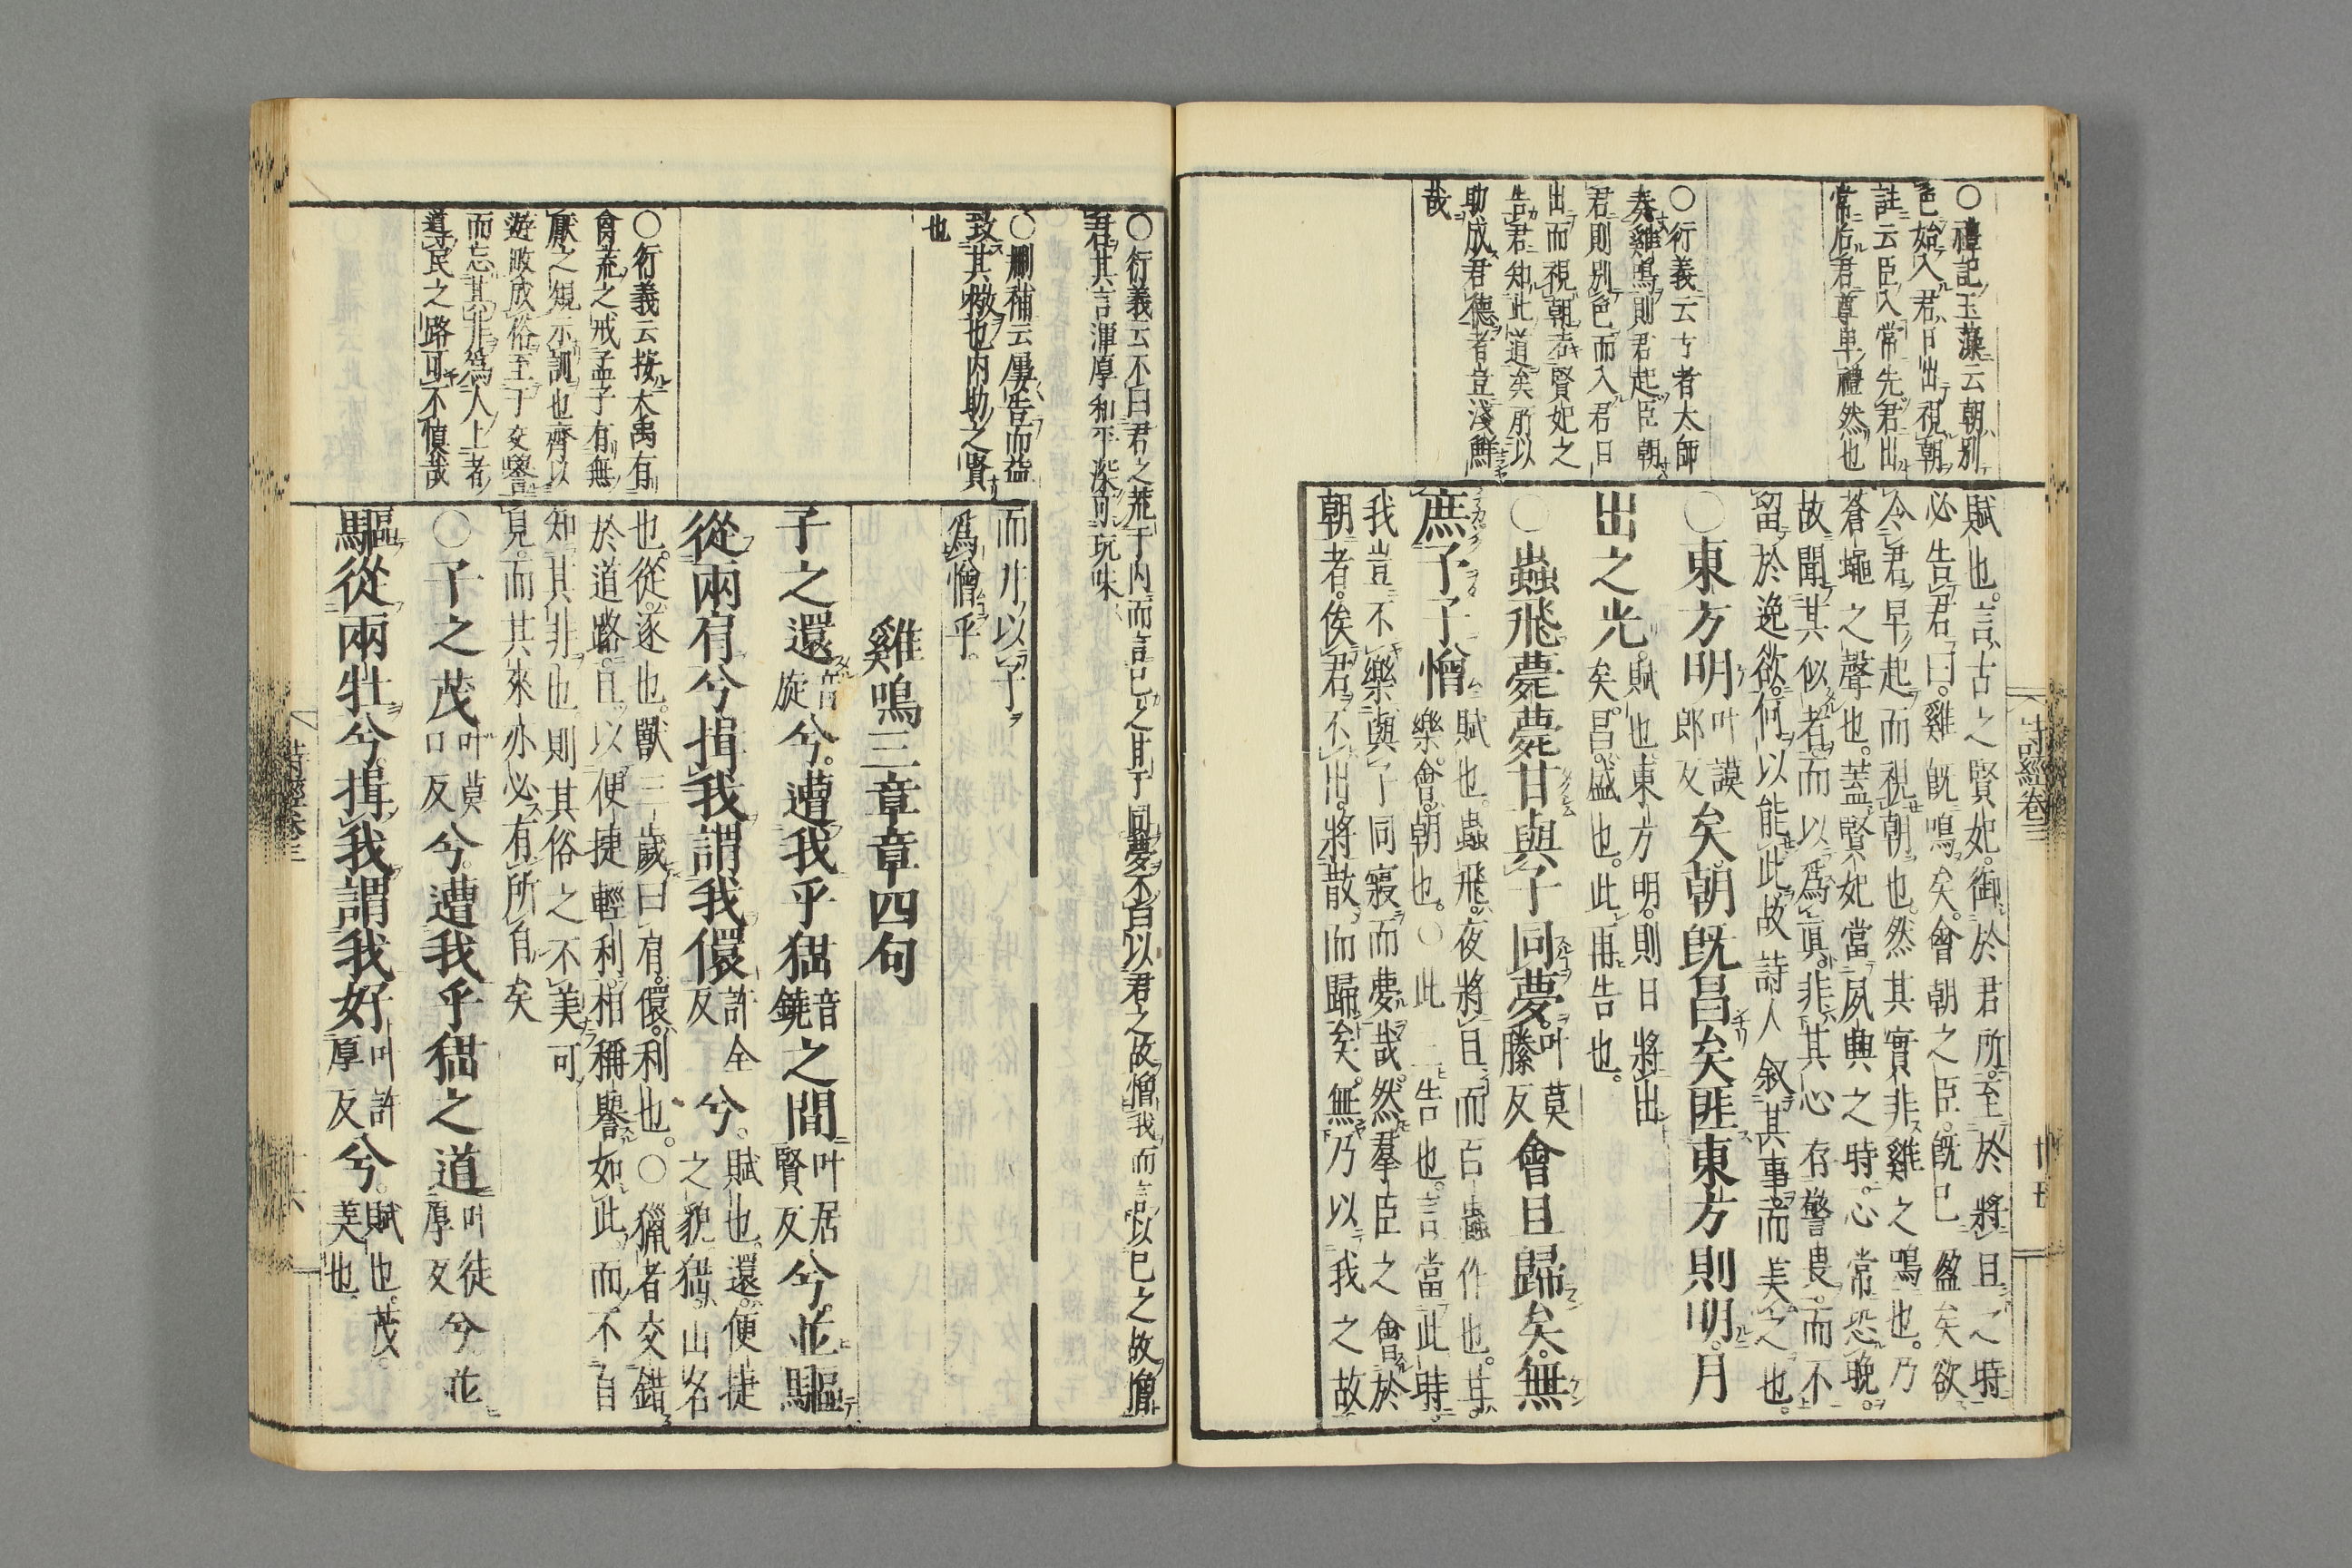 ○禮記玉藻云朝別
色始入君日出視朝
註云臣入常先君出
常后君尊卑禮然也
○衍義云古者太師
奏雞鳴則君起臣朝
君則別色而入君日
出而視朝若賢妃之
告君知此道矣所以
助成君德者豈淺鮮
哉
賦也。言古之賢妃。御於君所。至於將旦之時
必告君曰。雞既鳴矣。會朝之臣。既已盈矣欲
令君早起而視朝也。然其實非雞之鳴也。乃
蒼蠅之聲也。蓋賢妃當夙興之時。心常恐晚。
故聞其似者。而以爲眞。非其心存警畏。而不
留於逸欲。何以能此。故詩人叙其事。而美之也。
○東方明叶謨郎反矣。朝既昌矣匪東方則明。月
出之光。賦也。東方明。則日將出矣。昌。盛也。此再告也。
○蟲飛薨薨。甘與子同夢。叶莫滕反會且歸矣。無
庶予子憎賦也。蟲飛。夜將旦。而百蟲作也。甘。樂。會。朝也。○此三告也。言當此時。
我豈不樂與子同寢而夢哉。然羣臣之會於
朝者。俟君不出。將散而歸矣。無乃以我之故
詩經卷三
○衍義云不曰君之荒于内而言己之甘于同夢不直以君之故憎我而言以已之故憎
君其言渾厚和平深可玩味
○刪補云屢告而益
致其敬也内助之賢
也
○衍義云按大禹有
禽荒之戒孟子有無
厭之規示訓也齊以
遊畋成俗至于交譽
而忘其非爲人上者
導民之路可不愼哉
而并以子
爲憎乎。
雞鳴三章章四句
子之還音旋兮。遭我乎猺音鐃之間叶居賢反兮。並驅
從兩肩兮揖我謂我儇許全反兮。賦也。還。便捷之貌猺。山名
也。從。逐也。獸三歲曰肩。儇。利也。○獵者交錯
於道路。且以便捷輕利。相稱譽如此。而不自
知其非也則其俗之不美可
見。而其來亦必有所自矣
○子之茂叶莫口反兮。遭我乎猺之道叶徒厚反兮。並
驅從兩牡兮。揖我謂我好叶許厚反兮。賦也。茂。美也
詩經卷三